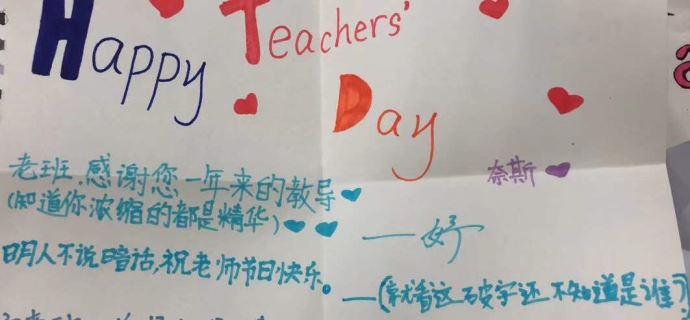 Happy Teachers' Day
老班,感谢您一年来的教导
(知道你浓缩的都是精华)
奈斯
——好
明人不说暗话,祝老师节日快乐。
——(就看这破字还不知道是谁?)